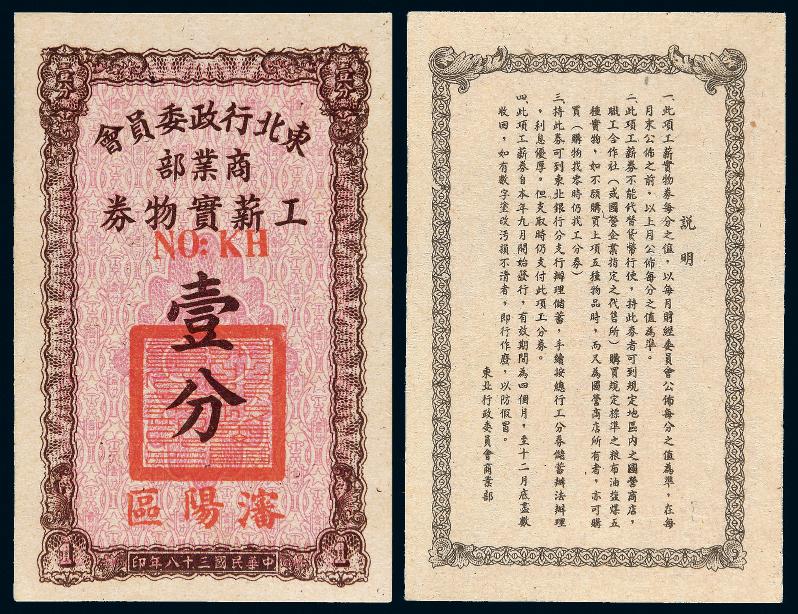 壹分
壹分
東北行政委員會
商業部
工薪實物券
NO: KH
壹
分
瀋陽區
1
1
中華民國三十八年印
說明
一、此項工薪實物券每分之值，以每月財經委員會公佈每分之值為準，在每
月末公佈之前，以上月公佈每分之值為準。
二、此項工薪券不能代替貨幣行使，持此券者可到規定地區內之國營商店，
職工合作社（或國營企業指定之代售所）購買規定標準之粮布油鹽煤五
種實物，如不願購買上項五種物品時，而又為國營商店所有者，亦可購
買（購物找零時仍找工分券）
三、持此券可到東北銀行分支行辦理儲蓄，手續按總行工分券儲蓄辦法辦理
，利息優厚。但支取時仍支付此項工分券。
四、此項工薪券自本年九月開始發行，有效期間為四個月，至十二月底盡數
收回，如有數字塗改污損不清者，即行作廢，以防假冒。
東北行政委員會商業部